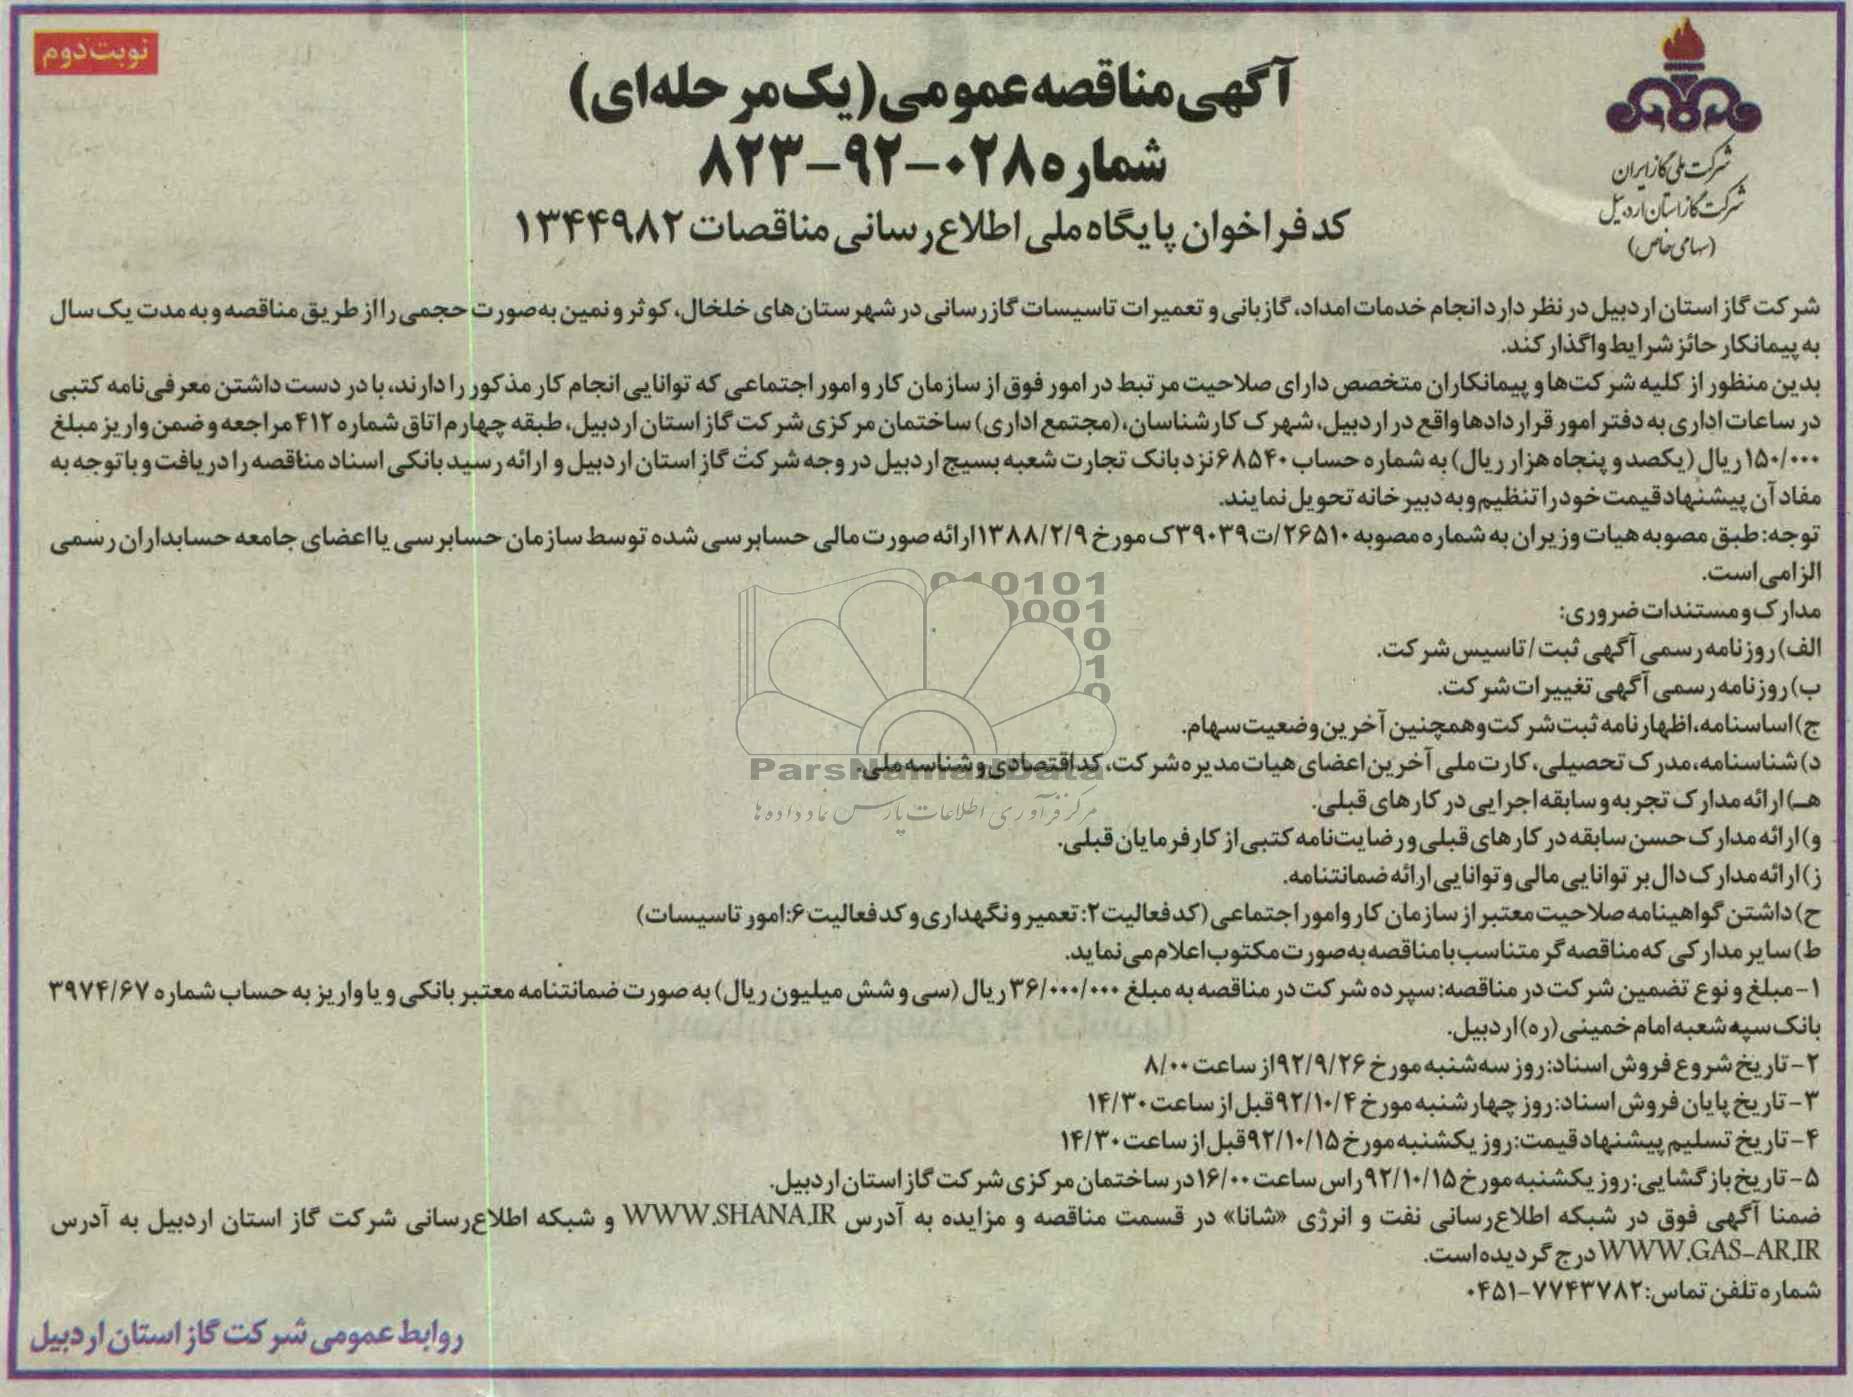 نوبت دوم
آگهی مناقصه عمومی (یک مرحله‌ای)
شماره ۰۲۸-۹۲-۸۲۳
کد فراخوان پایگاه ملی اطلاع رسانی مناقصات ۱۳۴۴۹۸۲
شرکت ملی گاز ایران
شرکت گاز استان اردبیل
(سهامی خاص)
شرکت گاز استان اردبیل در نظر دارد انجام خدمات امداد، گازبانی و تعمیرات تاسیسات گازرسانی در شهرستان‌های خلخال، کوثر و نمین به صورت حجمی را از طریق مناقصه و به مدت یک سال
به پیمانکار حائز شرایط واگذار کند.
بدین منظور از کلیه شرکت‌ها و پیمانکاران متخصص دارای صلاحیت مرتبط در امور فوق از سازمان کار و امور اجتماعی که توانایی انجام کار مذکور را دارند، با در دست داشتن معرفی‌نامه کتبی
در ساعات اداری به دفتر امور قراردادها واقع در اردبیل، شهرک کارشناسان، (مجتمع اداری) ساختمان مرکزی شرکت گاز استان اردبیل، طبقه چهارم اتاق شماره ۴۱۲ مراجعه و ضمن واریز مبلغ
۱۵۰/۰۰۰ ریال (یکصد و پنجاه هزار ریال) به شماره حساب ۶۸۵۴۰ نزد بانک تجارت شعبه بسیج اردبیل در وجه شرکت گاز استان اردبیل و ارائه رسید بانکی اسناد مناقصه را دریافت و با توجه به
مفاد آن پیشنهاد قیمت خود را تنظیم و به دبیرخانه تحویل نمایند.
توجه: طبق مصوبه هیات وزیران به شماره مصوبه ۲۶۵۱۰/ت۳۹۰۳۹ک مورخ ۱۳۸۸/۲/۹ ارائه صورت مالی حسابرسی شده توسط سازمان حسابرسی یا اعضای جامعه حسابداران رسمی
الزامی است.
مدارک و مستندات ضروری:
الف) روزنامه رسمی آگهی ثبت / تاسیس شرکت.
ب) روزنامه رسمی آگهی تغییرات شرکت.
ج) اساسنامه، اظهارنامه ثبت شرکت و همچنین آخرین وضعیت سهام.
د) شناسنامه، مدرک تحصیلی، کارت ملی آخرین اعضای هیات مدیره شرکت، کد اقتصادی و شناسه ملی.
هـ) ارائه مدارک تجربه و سابقه اجرایی در کارهای قبلی.
و) ارائه مدارک حسن سابقه در کارهای قبلی و رضایت‌نامه کتبی از کارفرمایان قبلی.
ز) ارائه مدارک دال بر توانایی مالی و توانایی ارائه ضمانتنامه.
ح) داشتن گواهینامه صلاحیت معتبر از سازمان کار و امور اجتماعی (کد فعالیت ۲: تعمیر و نگهداری و کد فعالیت ۶: امور تاسیسات)
ط) سایر مدارکی که مناقصه گر متناسب با مناقصه به صورت مکتوب اعلام می‌نماید.
۱- مبلغ و نوع تضمین شرکت در مناقصه: سپرده شرکت در مناقصه به مبلغ ۳۶/۰۰۰/۰۰۰ ریال (سی و شش میلیون ریال) به صورت ضمانتنامه معتبر بانکی و یا واریز به حساب شماره ۳۹۷۴/۶۷
بانک سپه شعبه امام خمینی (ره) اردبیل.
۲- تاریخ شروع فروش اسناد: روز سه‌شنبه مورخ ۹۲/۹/۲۶ از ساعت ۸/۰۰
۳- تاریخ پایان فروش اسناد: روز چهارشنبه مورخ ۹۲/۱۰/۴ قبل از ساعت ۱۴/۳۰
۴- تاریخ تسلیم پیشنهاد قیمت: روز یکشنبه مورخ ۹۲/۱۰/۱۵ قبل از ساعت ۱۴/۳۰
۵- تاریخ بازگشایی: روز یکشنبه مورخ ۹۲/۱۰/۱۵ راس ساعت ۱۶/۰۰ در ساختمان مرکزی شرکت گاز استان اردبیل.
ضمنا آگهی فوق در شبکه اطلاع‌رسانی نفت و انرژی «شانا» در قسمت مناقصه و مزایده به آدرس WWW.SHANA.IR و شبکه اطلاع‌رسانی شرکت گاز استان اردبیل به آدرس
WWW.GAS-AR.IR درج گردیده است.
شماره تلفن تماس: ۷۷۴۳۷۸۲-۰۴۵۱
روابط عمومی شرکت گاز استان اردبیل
ParsNamadData
مرکز فرآوری اطلاعات پارس نماد داده ها